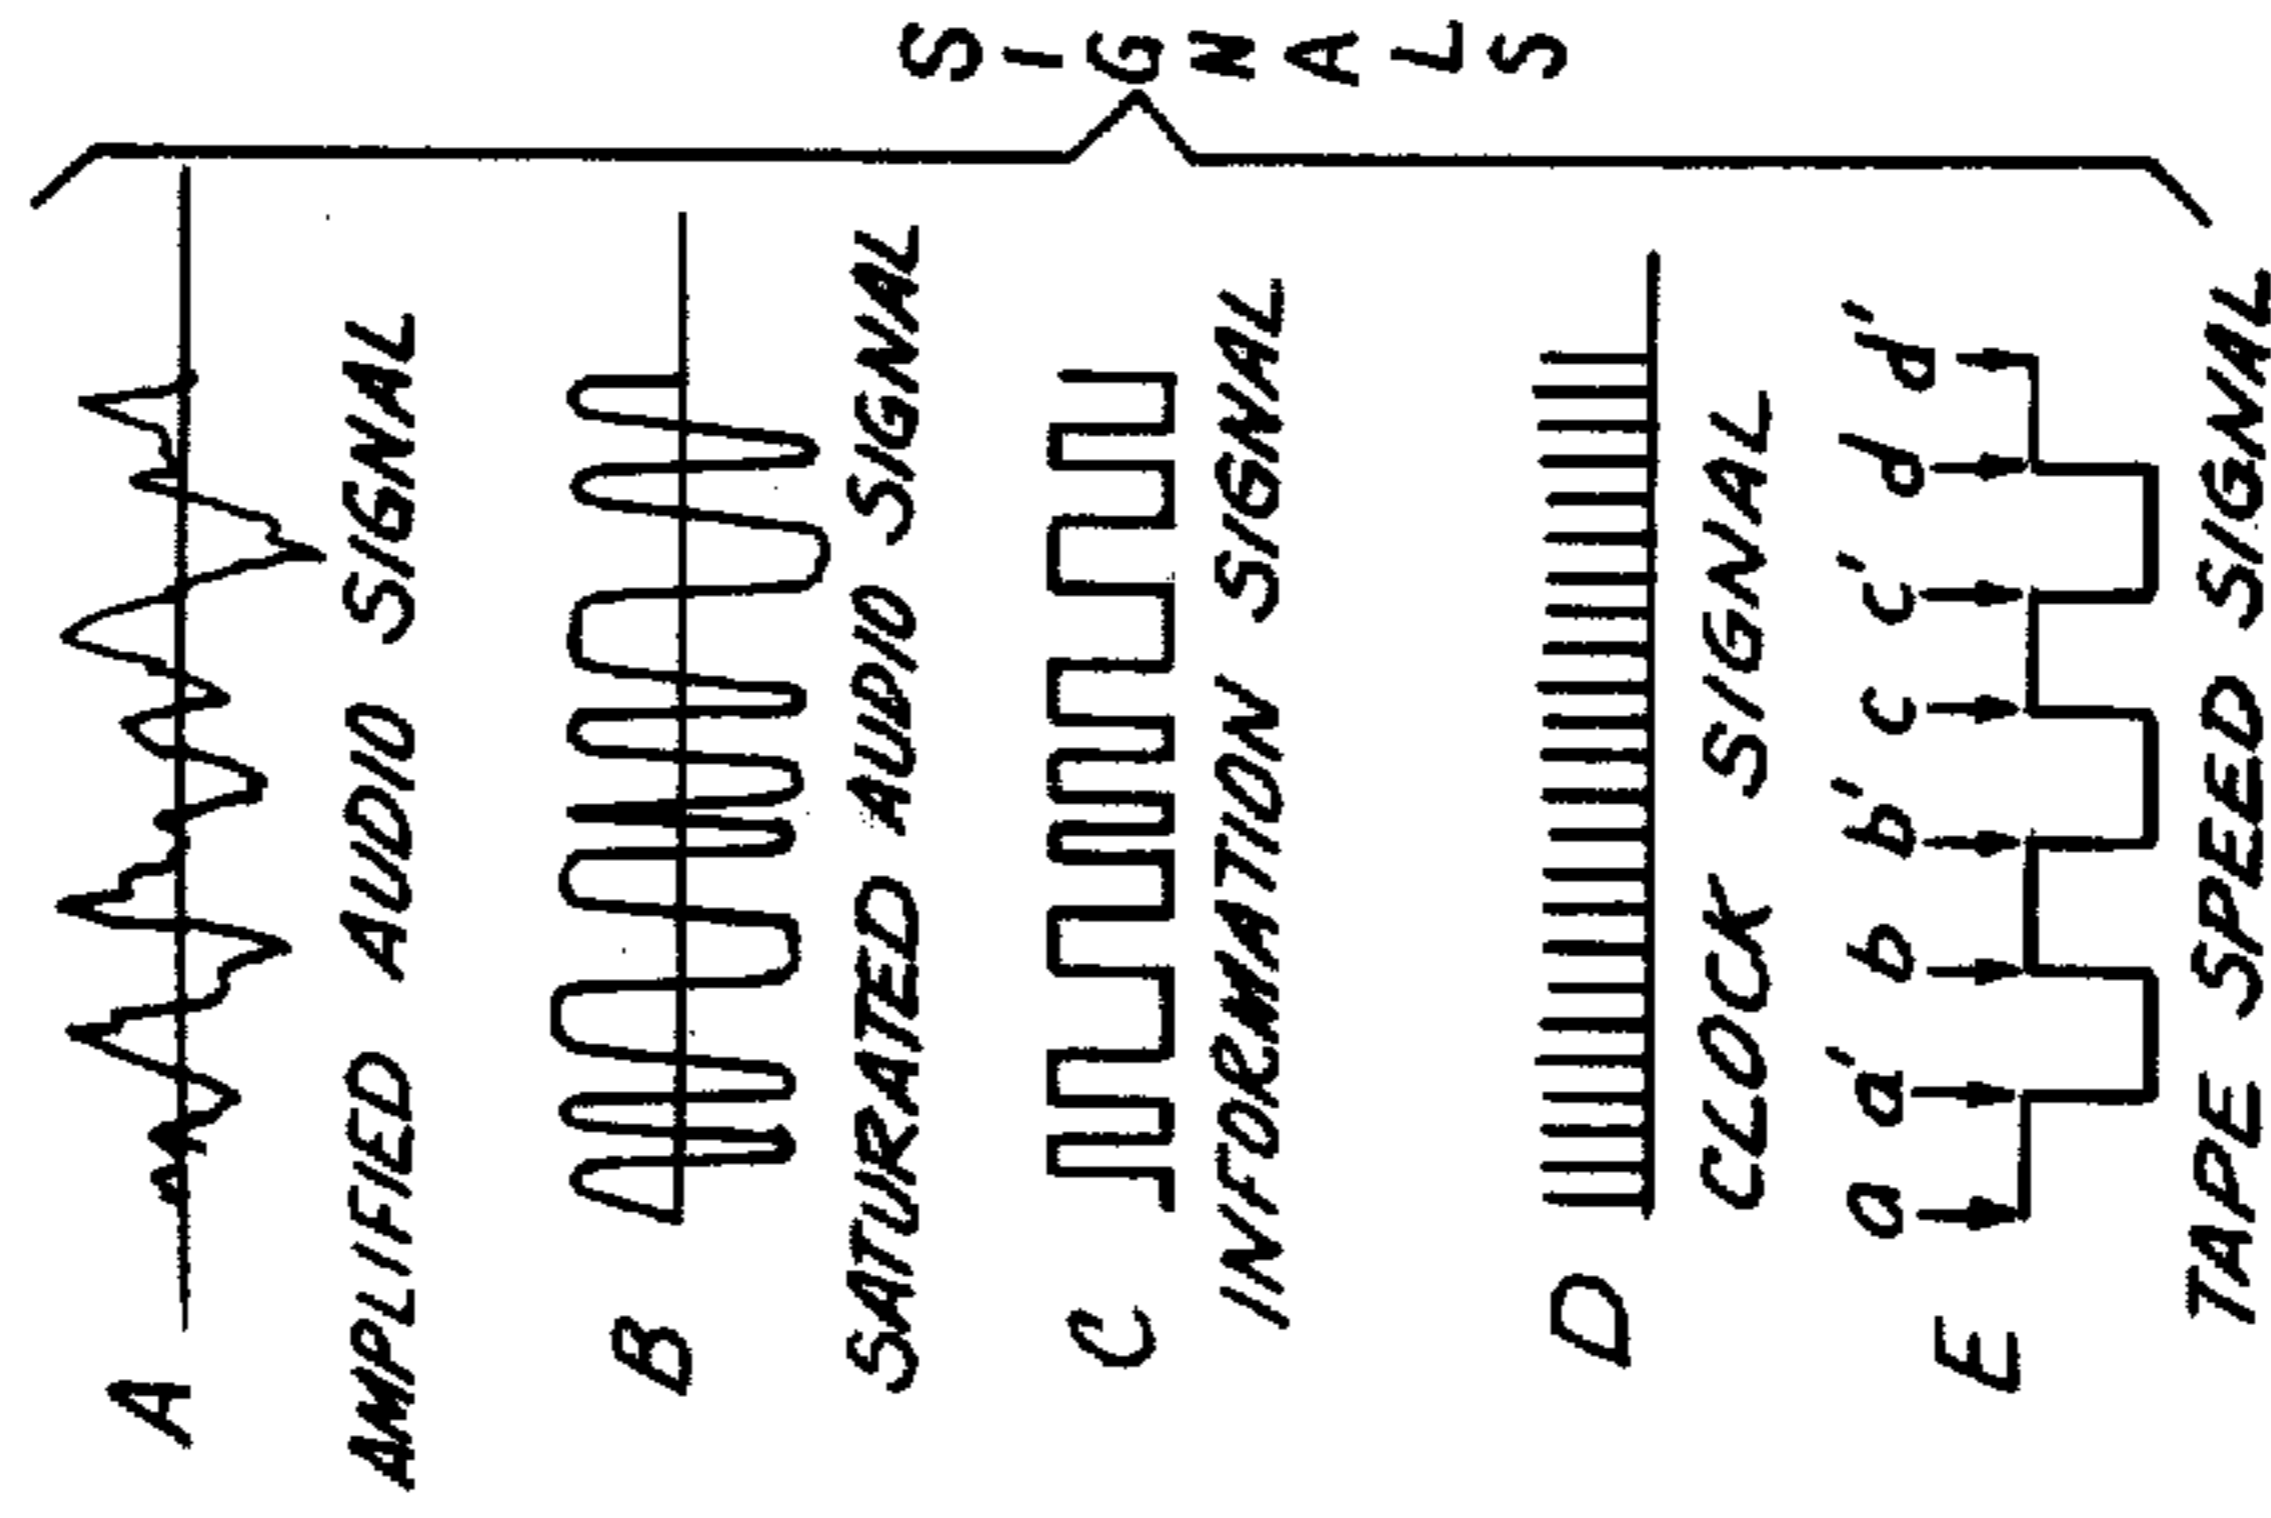 A
AMPLIFIED AUDIO SIGNAL
B
SATURATED AUDIO SIGNAL
C
INFORMATION SIGNAL
D
CLOCK SIGNAL
E
a a' b b' c c' d d'
TAPE SPEED SIGNAL
SIGNALS